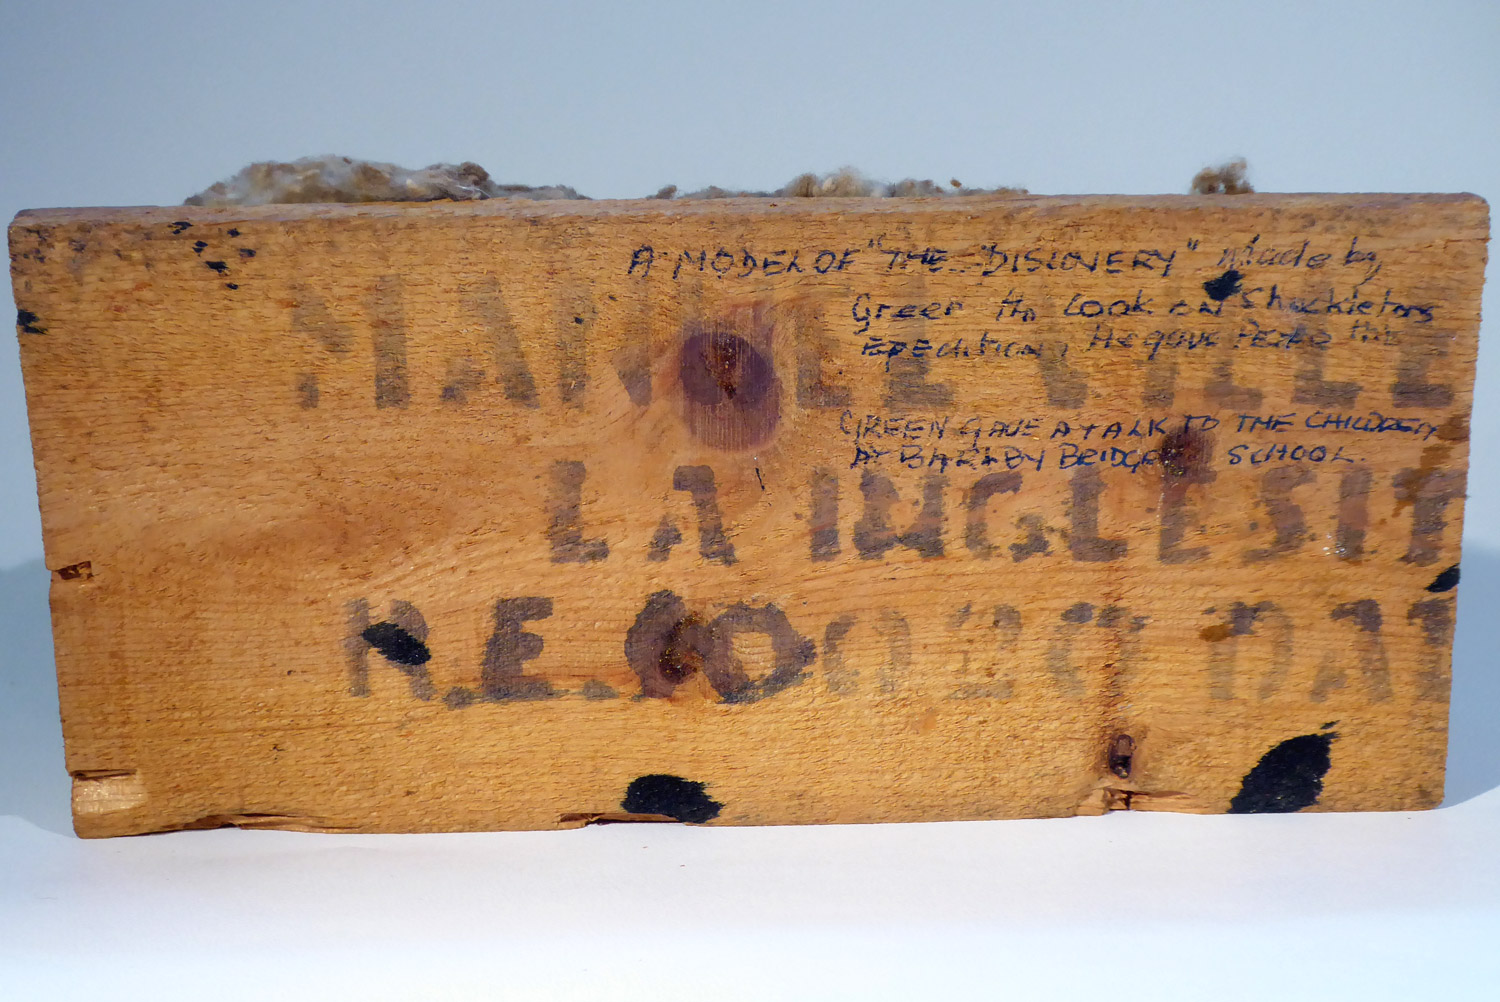 A MODEL OF "THE DISCOVERY" Made by
Green the Cook on Shackletons
Epedition, He gave Pedro this
GREEN GAVE A TALK TO THE CHILDREN
AT BARLBY BRIDGE SCHOOL.
LA INGLESIT
R.E.